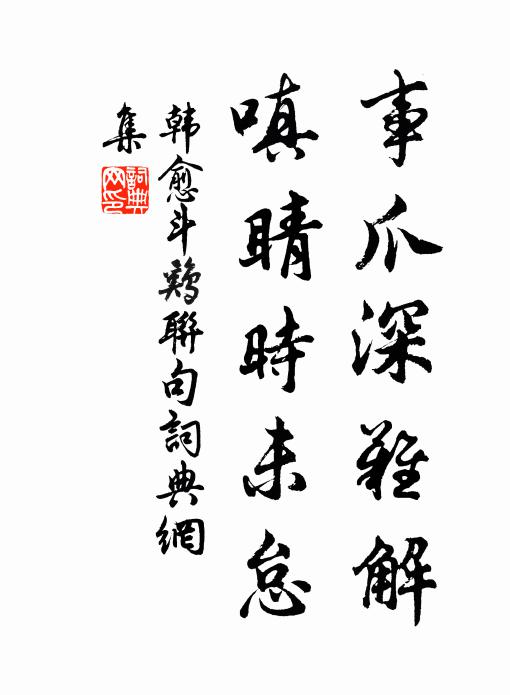 事爪深難解
嗔睛時未怠
韩愈斗鷄聯句詞典網
集
詞典
网印